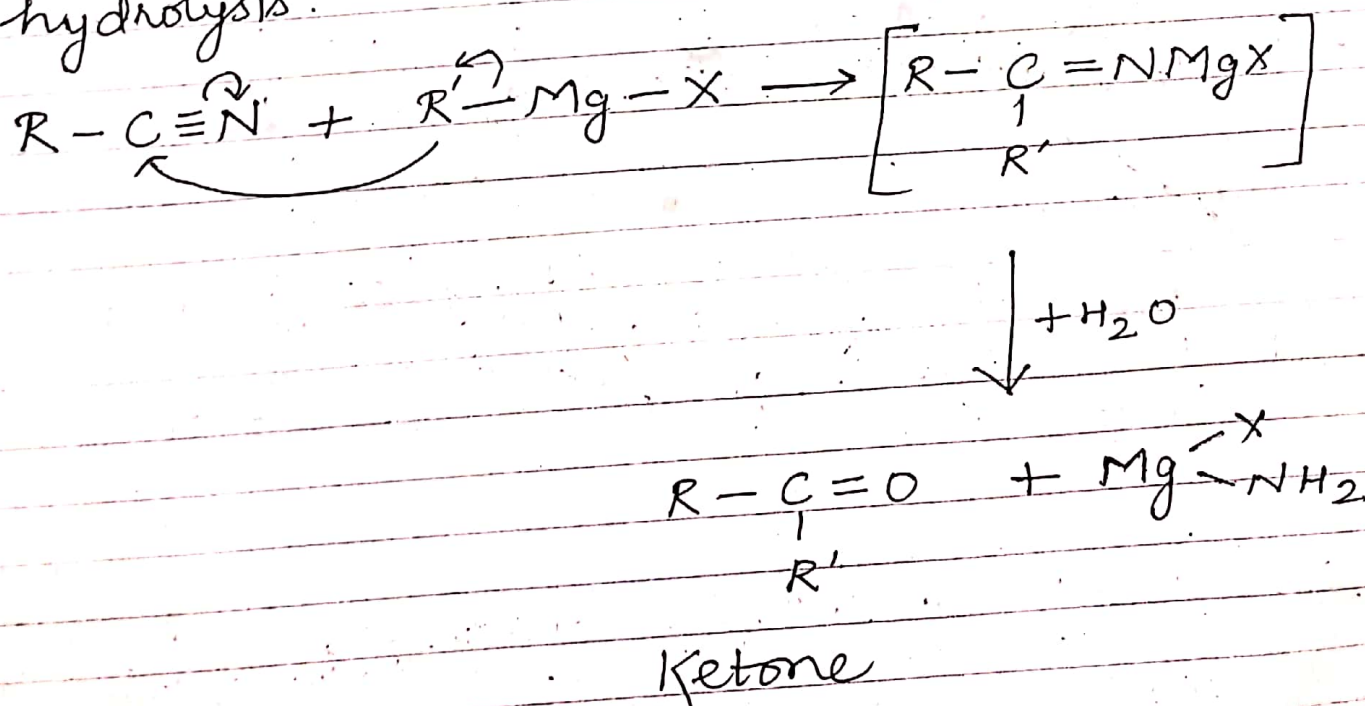 hydrolysis.
R - C ≡ N + R' - Mg - X → [R - C = NMgX]
|
R'
↓ + H₂O
R - C = O + Mg < X NH₂
|
R'
Ketone